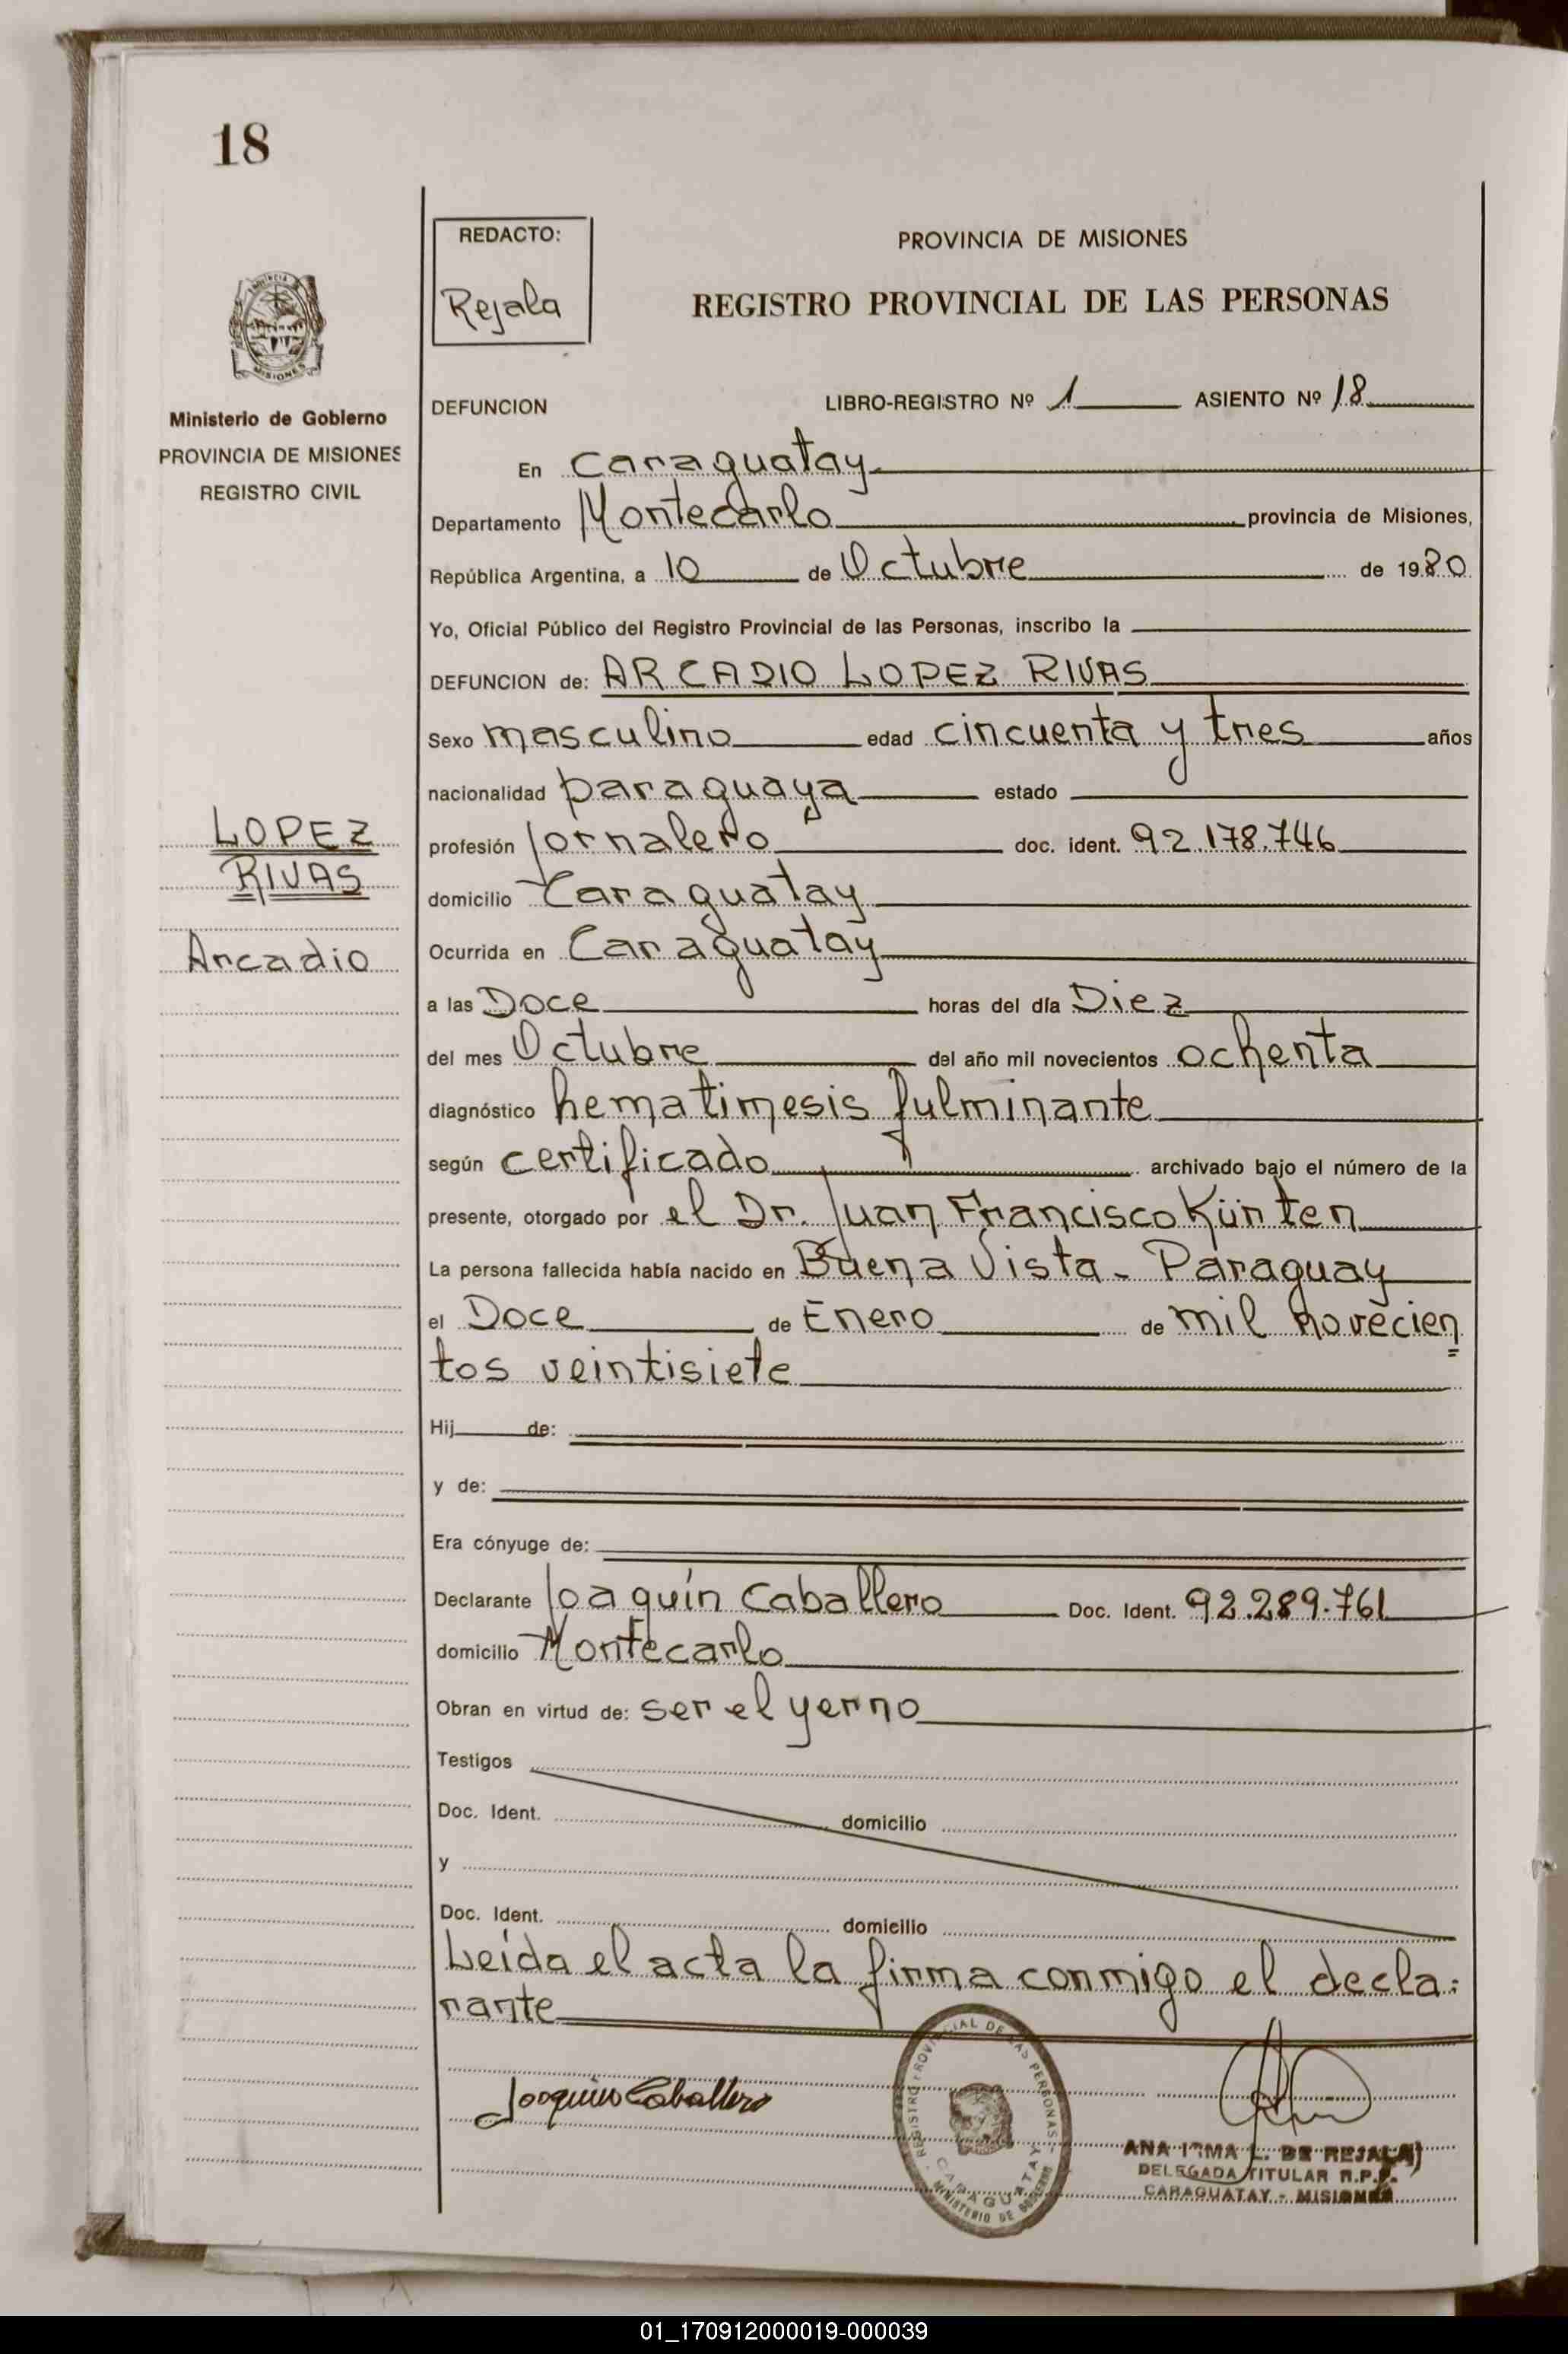 18
REDACTO:
Rejala
PROVINCIA DE MISIONES
REGISTRO PROVINCIAL DE LAS PERSONAS
MISIONES
Ministerio de Gobierno
PROVINCIA DE MISIONES
REGISTRO CIVIL
DEFUNCION LIBRO-REGISTRO Nº 1 ASIENTO Nº 18
En Caraguatay
Departamento Montecarlo provincia de Misiones,
República Argentina, a 10 de Octubre de 1980
Yo, Oficial Público del Registro Provincial de las Personas, inscribo la
DEFUNCION de: ARCADIO LOPEZ RIVAS
Sexo masculino edad cincuenta y tres años
nacionalidad paraguaya estado
LOPEZ
RIVAS
Arcadio
profesión Jornalero doc. ident. 92.178.746
domicilio Caraguatay
Ocurrida en Caraguatay
a las Doce horas del día Diez
del mes Octubre del año mil novecientos ochenta
diagnóstico hematimesis fulminante
según certificado archivado bajo el número de la
presente, otorgado por el Dr. Juan Francisco Künten
La persona fallecida había nacido en Buena Vista - Paraguay
el Doce de Enero de mil novecien
tos veintisiete
Hij de:
y de:
Era cónyuge de:
Declarante Joaquín Caballero Doc. Ident. 92.289.761
domicilio Montecarlo
Obran en virtud de: ser el yerno
Testigos
Doc. Ident. domicilio
y
Doc. Ident. domicilio
Leída el acta la firma conmigo el decla:
rante
Joaquin Caballero
REGISTRO PROVINCIAL DE LAS PERSONAS
CARAGUATAY
MINISTERIO DE GOBIERNO
ANA IRMA L. DE REJALA
DELEGADA TITULAR R.P.P.
CARAGUATAY - MISIONES
01_170912000019-000039